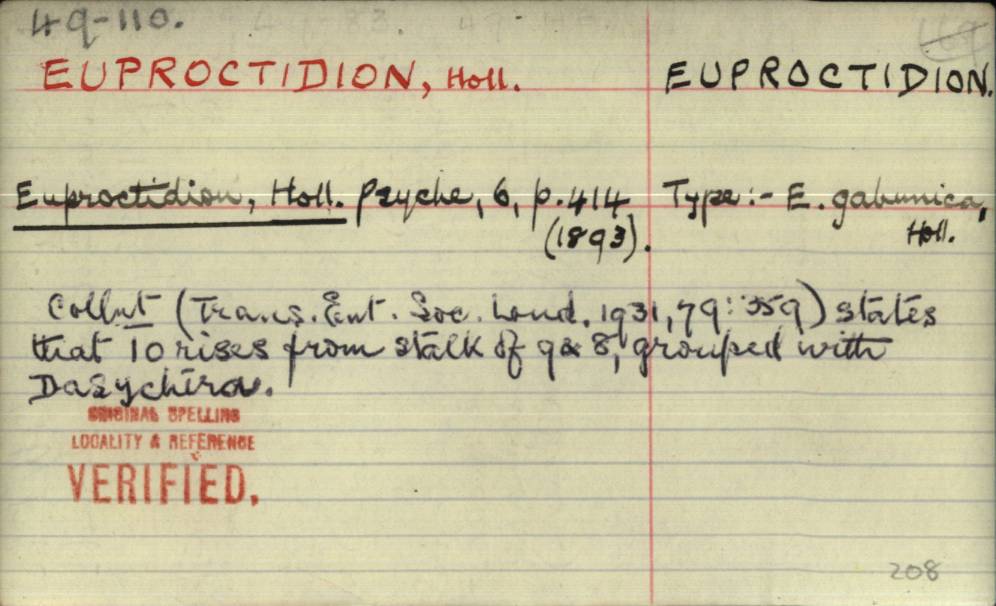 49-110.
169
EUPROCTIDION, Holl. EUPROCTIDION.
Euproctidion, Holl. Psyche, 6, p. 414 Type:- E. gabunica,
(1893). Holl.
Collnt (Trans. Ent. Soc. Lond. 1931, 79: 359) states
that 10 rises from stalk of 9 & 8, grouped with
Dasychira.
ORIGINAL SPELLING
LOCALITY & REFERENCE
VERIFIED.
208